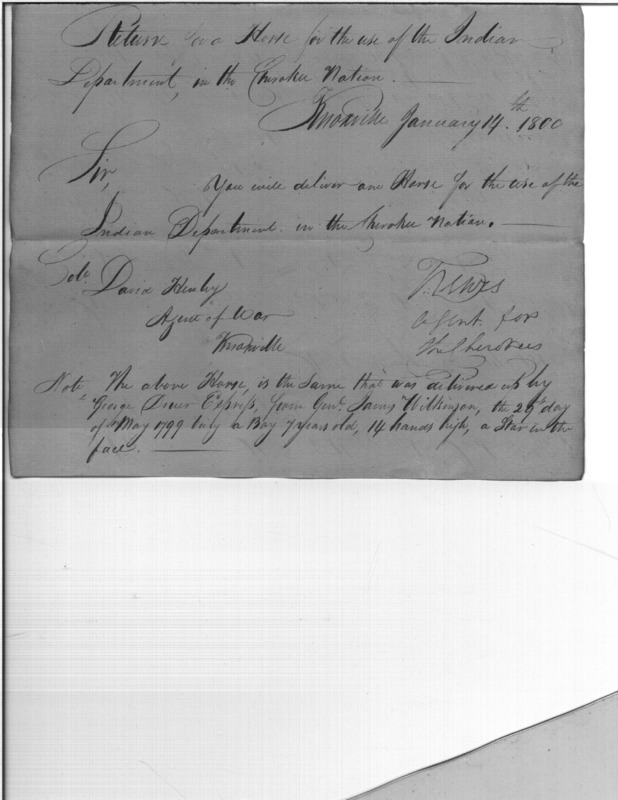 Return for a Horse for the use of the Indian
Department, in the Cherokee Nation.
Knoxville January 14th. 1800
Sir,
You will deliver one Horse for the use of the
Indian Department in the Cherokee Nation.
Colo. David Henley
Agent of War
Knoxville
Agent for
the Cherokees
Note, The above Horse, is the same that was delivered up by
George Express, from Genl. James Wilkinson, the 29th day
of May 1799 a Bay 7 years old, 14 hands high, a Star in the
face.